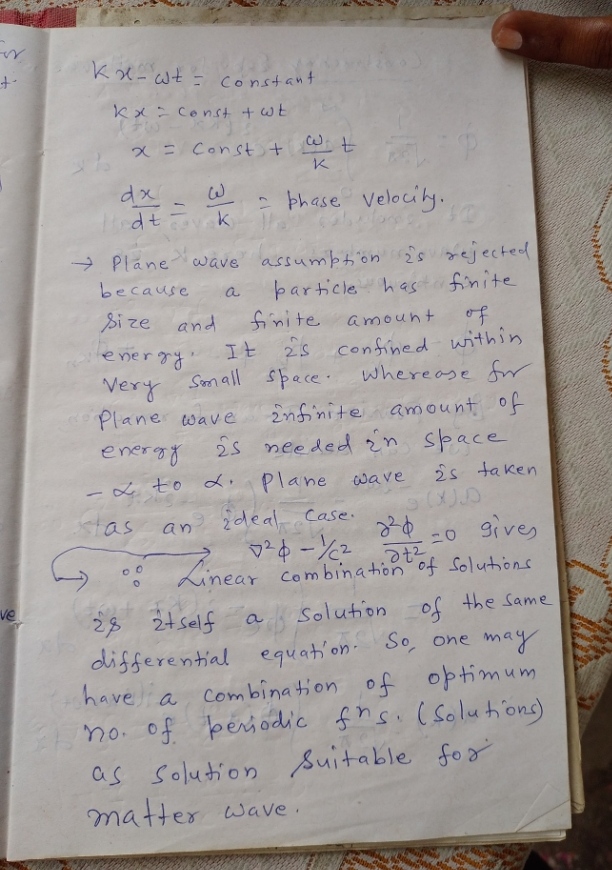 kx - ωt = constant
kx = const + ωt
x = const + ω/k t
dx/dt = ω/k = phase velocity.
→ Plane wave assumption is rejected
because a particle has finite
size and finite amount of
energy. It is confined within
very small space. Wherease for
Plane wave infinite amount of
energy is needed in space
- α to α. Plane wave is taken
as an ideal case.
∇²φ - 1/c² ∂²φ/∂t² = 0 gives
∵ Linear combination of solutions
is itself a solution of the same
differential equation. So, one may
have a combination of optimum
no. of periodic fns. (solutions)
as solution suitable for
matter wave.